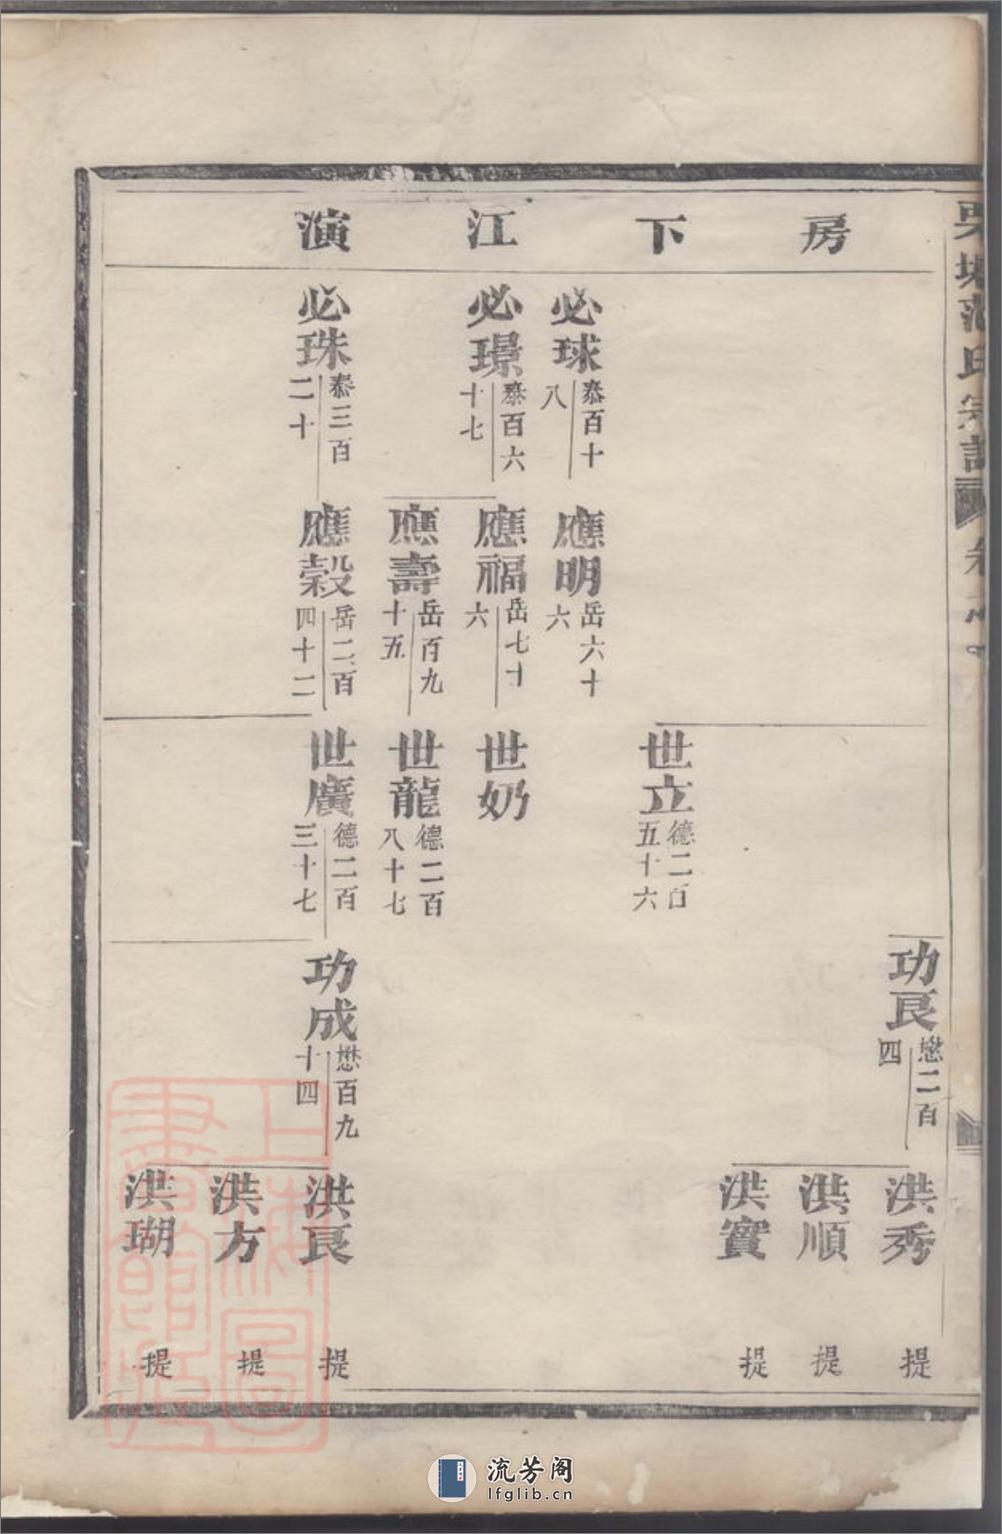 房下江演
必球
泰百十
八
必璟
泰百六
十七
必珠
泰三百
二十
應明
岳六十
六
應福
岳七十
六
應壽
岳百九
十五
應榖
岳二百
四十二
世立
德二百
五十六
世奶
世龍
德二百
八十七
世廣
德二百
三十七
功良
懋二百
四
功成
懋百九
十四
洪秀
提
洪順
提
洪實
提
洪良
提
洪方
提
洪瑚
提
氏宗譜
上海圖書館藏
流芳阁
lfglib.cn